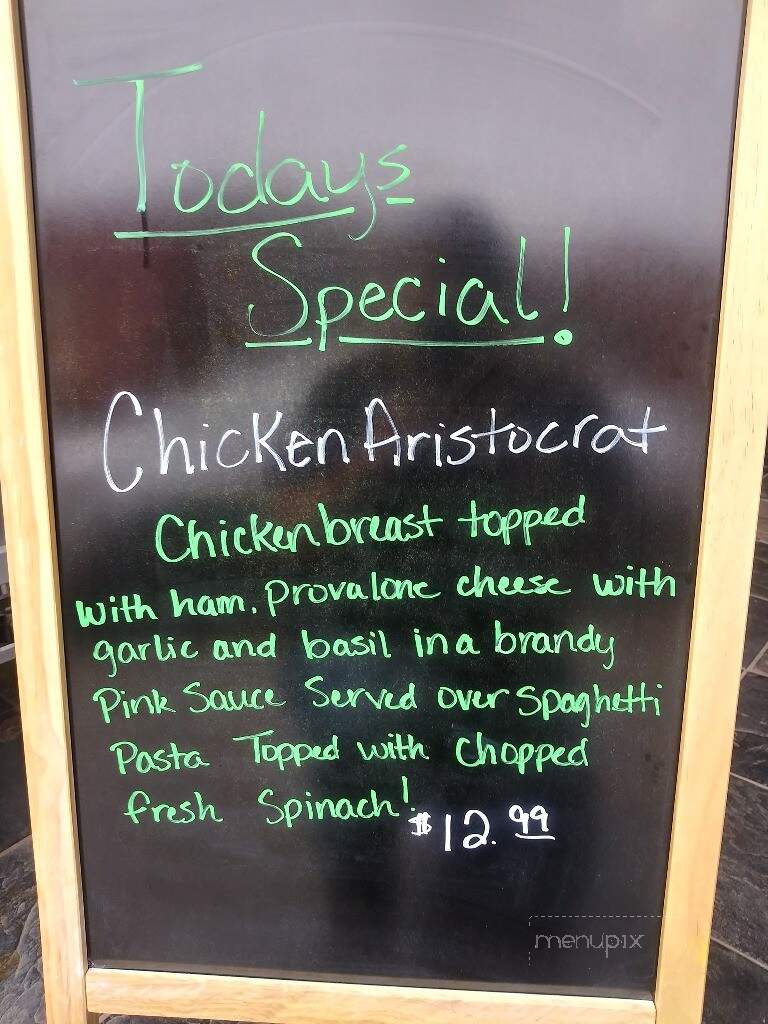 Todays
Special!
Chicken Aristocrat
Chicken breast topped
with ham. Provalone cheese with
garlic and basil in a brandy
Pink Sauce Served over Spaghetti
Pasta Topped with Chopped
fresh Spinach!
$12.99
menupix